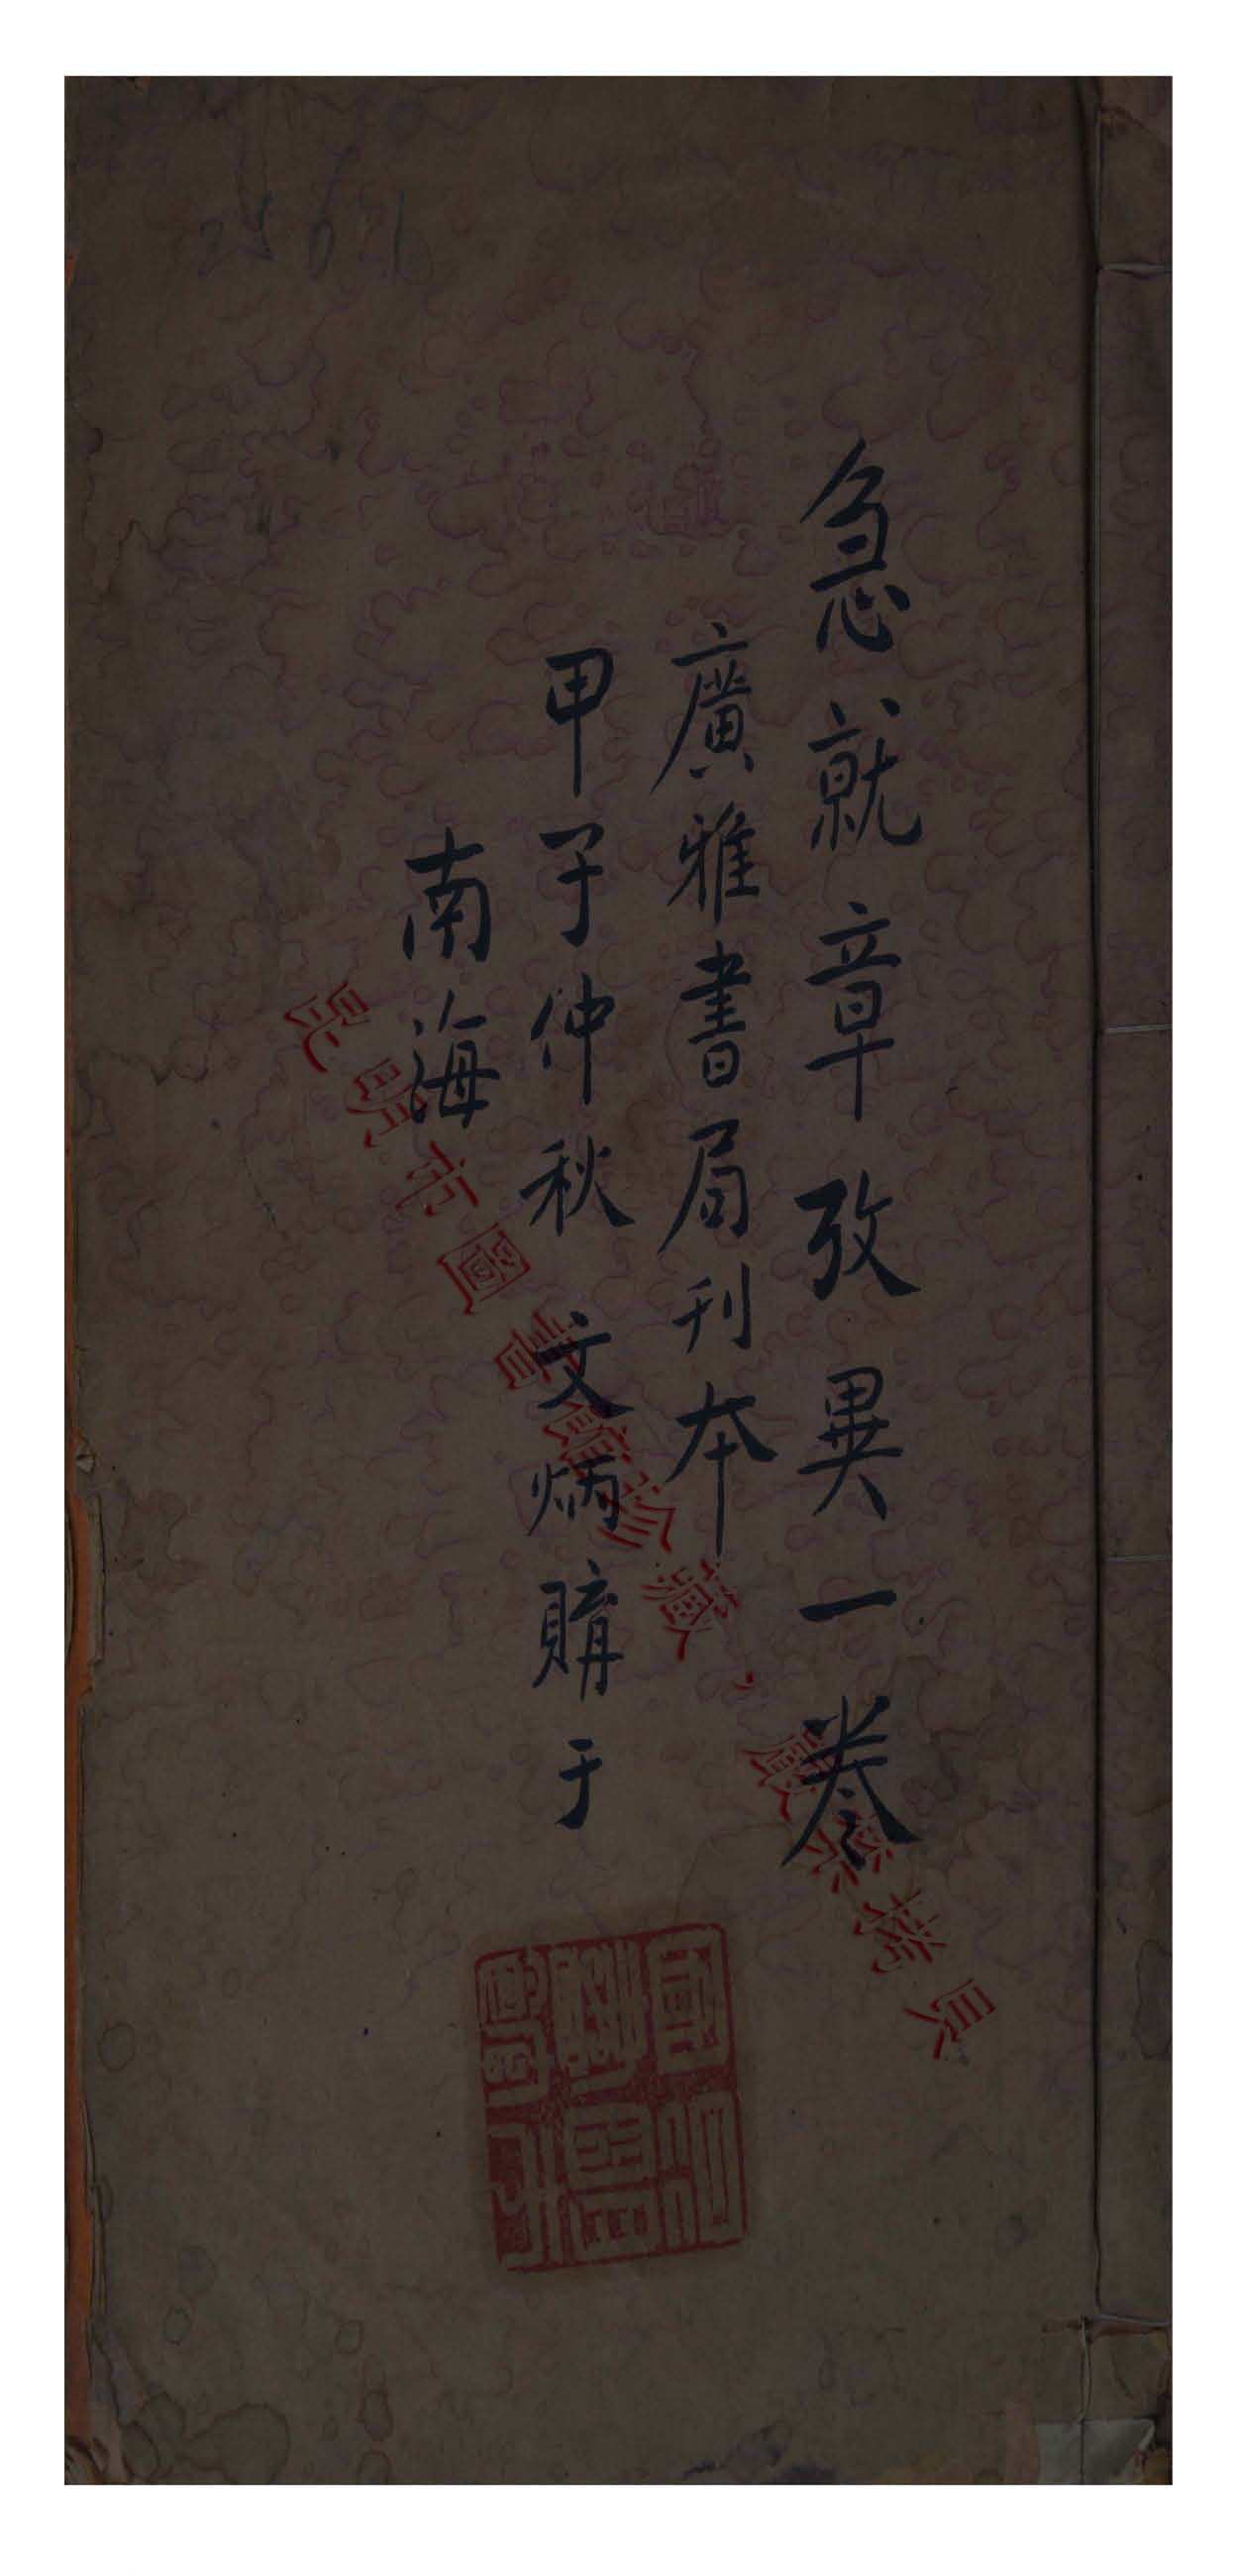 急就章攷異一卷
廣雅書局刊本
甲子仲秋 文炳購于
南海
昆明市圖書館珍藏，嚴禁拷貝